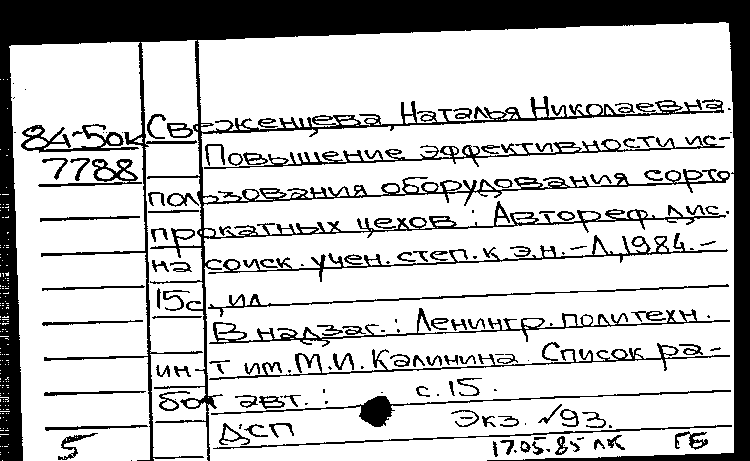 Свеженцева, Наталья Николаевна.
84-5ок
Повышение эффективности ис-
7788
пользования оборудования сорто
прокатных цехов : Автореф. дис.
на соиск. учен. степ. к.э.н. – Л., 1984. –
15с., ил.
В надзаг.: Ленингр. политехн.
ин-т им. М.И. Калинина. Список ра-
бот авт.: с. 15.
ДСП Экз. №93.
5 17.05.85 ЛК ГБ